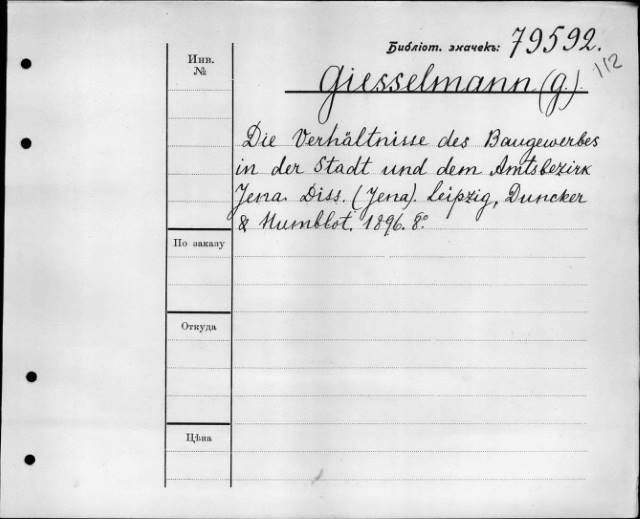 Библіот. значекъ: 79592.
112
Инв.
№
Giesselmann (G.).
Die Verhältnisse des Baugewerbes
in der Stadt und dem Amtsbezirk
Jena. Diss. (Jena). Leipzig, Duncker
& Humblot. 1896. 8°
По заказу
Откуда
Цѣна